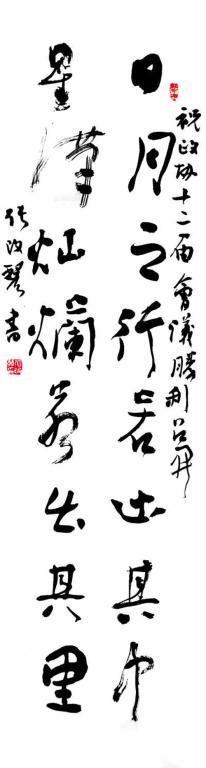 祝政协十二届会议胜利召开
日月之行若出其中
星汉灿烂若出其里
张改琴书